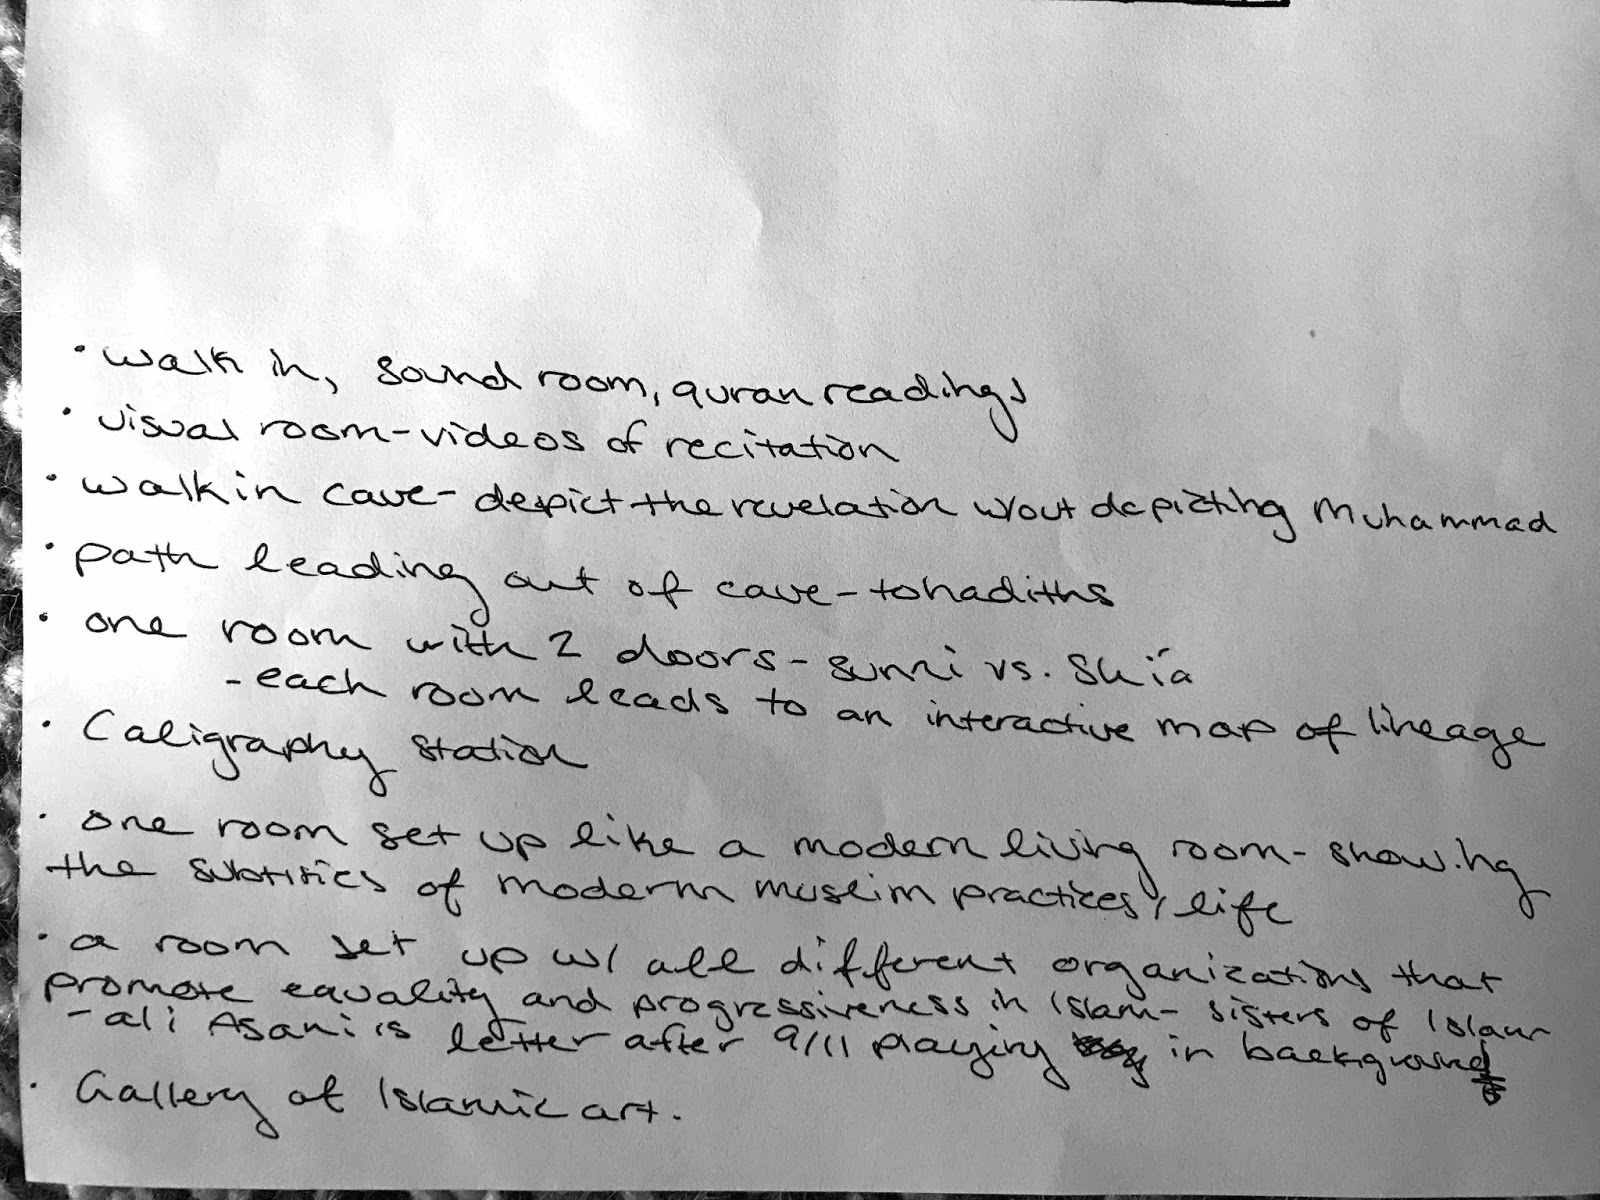 · walk in, sound room, quran readings
· visual room - videos of recitation
· walk in cave - depict the revelation w/out depicting Muhammad
· path leading out of cave - to hadiths
· one room with 2 doors - sunni vs. Shi'a
- each room leads to an interactive map of lineage
· Caligraphy Station
· one room set up like a modern living room - showing
the subtitics of modern muslim practices / life
· a room set up w/ all different organizations that
promote equality and progressiveness in Islam - sisters of Islam
- ali Asani's letter after 9/11 playing in background
· Gallery of Islamic art.